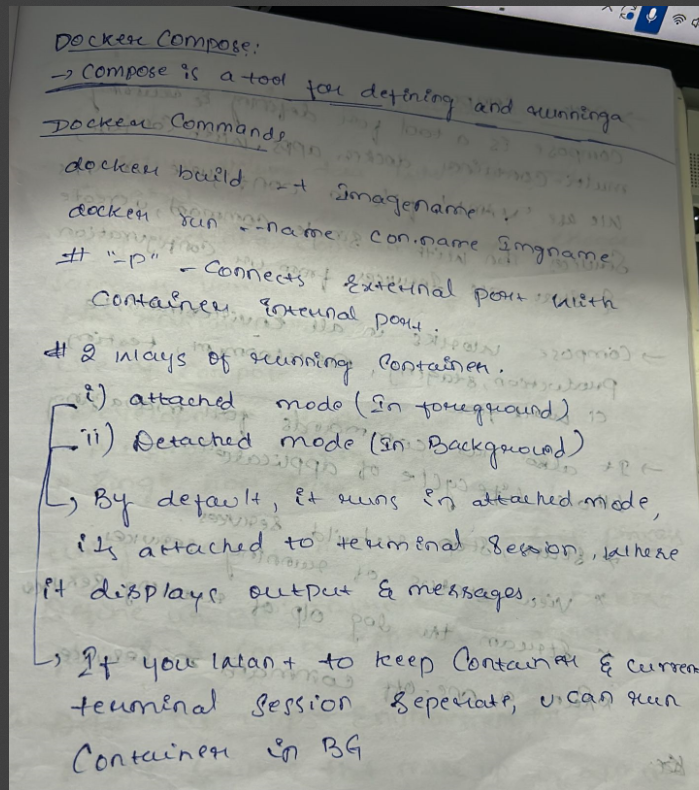 Docker Compose:
→ Compose is a tool for defining and runninga
Docker Commands
docker build -t Imagename
docker run --name con.name Imgname
# "-p" - Connects External port with
Container internal port.
# 2 ways of running Container.
i) attached mode (In foreground)
ii) Detached mode (In Background)
↳ By default, it runs in attached mode,
its attached to terminal Session, where
it displays output & messages.
↳ If you want to keep Container & curren
terminal Session Seperate, u can run
Container in BG